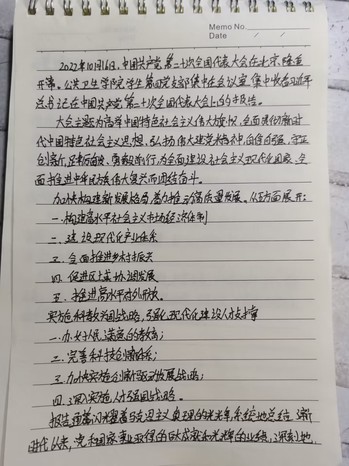 Memo No.
Date / /
2022年10月16日,中国共产党第二十次全国代表大会在北京隆重
开幕。公共卫生学院学生第四党支部集中在会议室集中收看习近平
总书记在中国共产党第二十次全国代表大会上的报告。
大会主题为高举中国特色社会主义伟大旗帜,全面贯彻新时
代中国特色社会主义思想,弘扬伟大建党精神,自信自强、守正
创新,踔厉奋发、勇毅前行,为全面建设社会主义现代化国家、全
面推进中华民族伟大复兴而团结奋斗。
加快构建新发展格局,着力推动高质量发展。从五方面展开:
一.构建高水平社会主义市场经济体制
二.建设现代化产业体系
三.全面推进乡村振兴
四.促进区域协调发展
五.推进高水平对外开放。
实施科教兴国战略,强化现代化建设人才支撑
一.办好人民满意的教育;
二.完善科技创新体系;
三.加快实施创新驱动发展战略;
四.深入实施人才强国战略。
报告通篇闪耀着马克思主义真理的光辉,系统地总结了新
时代以来,党和国家事业取得的巨大成就和光辉的业绩,深刻地